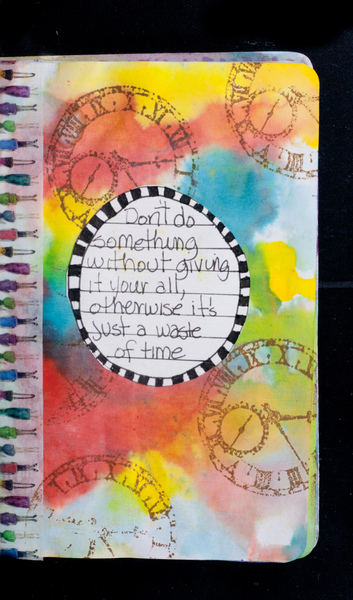 Don't do
something
without giving
it your all,
otherwise it's
just a waste
of time